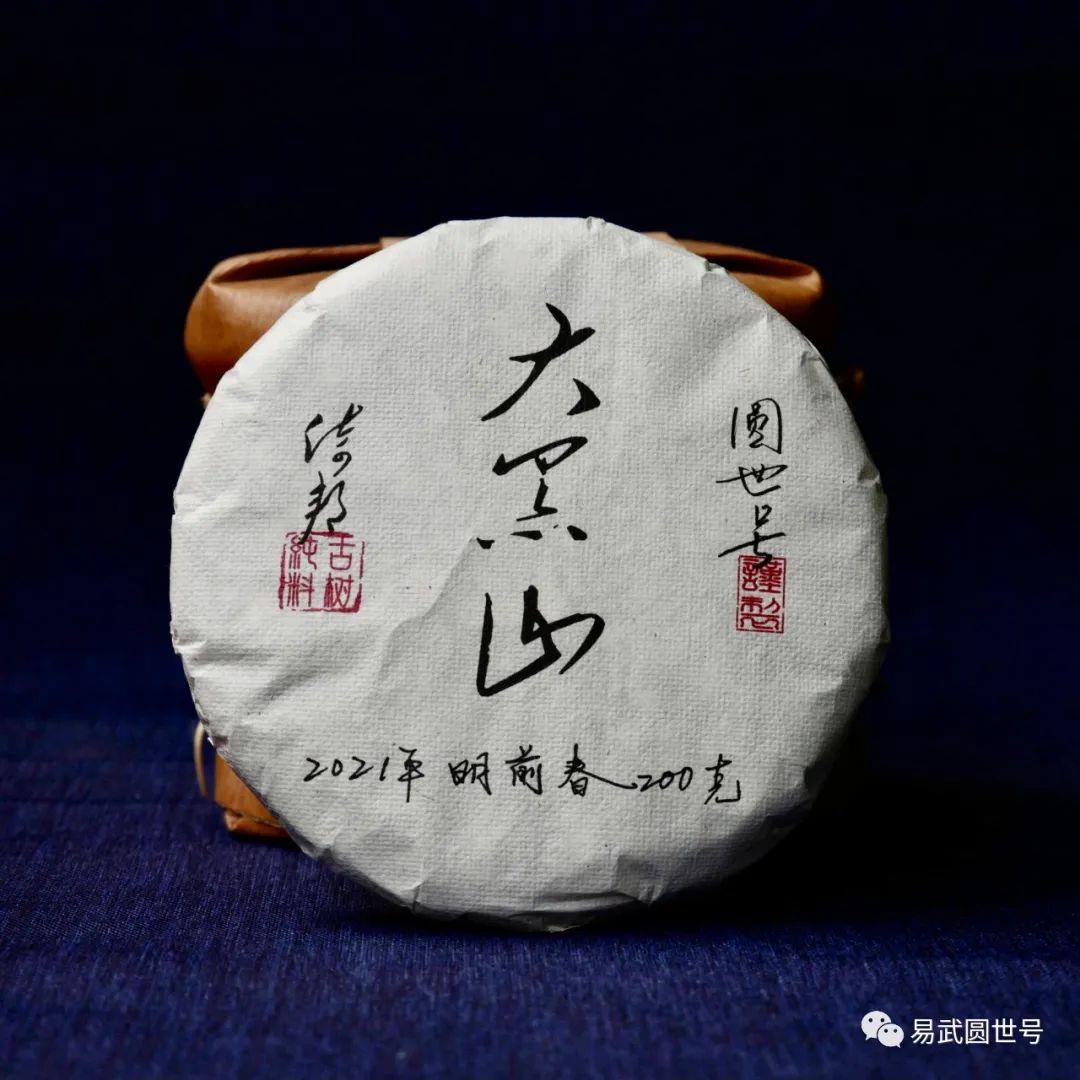 大黑山
圆世号
謹製
倚邦
古树
純料
2021年 明前春 200克
易武圆世号